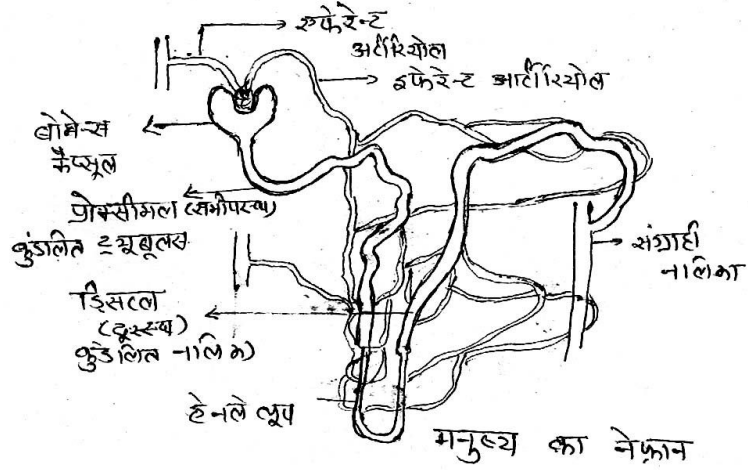 एफेरेन्ट
आर्टीरियोल
इफेरेन्ट आर्टीरियोल
बोमेन्स
कैप्सूल
प्रोक्सीमल (समीपस्थ)
कुंडलित ट्यूबूलस
संग्राही
नालिका
डिस्टल
(दूरस्थ)
कुंडलित नालिका
हेनले लूप
मनुष्य का नेफ्रान